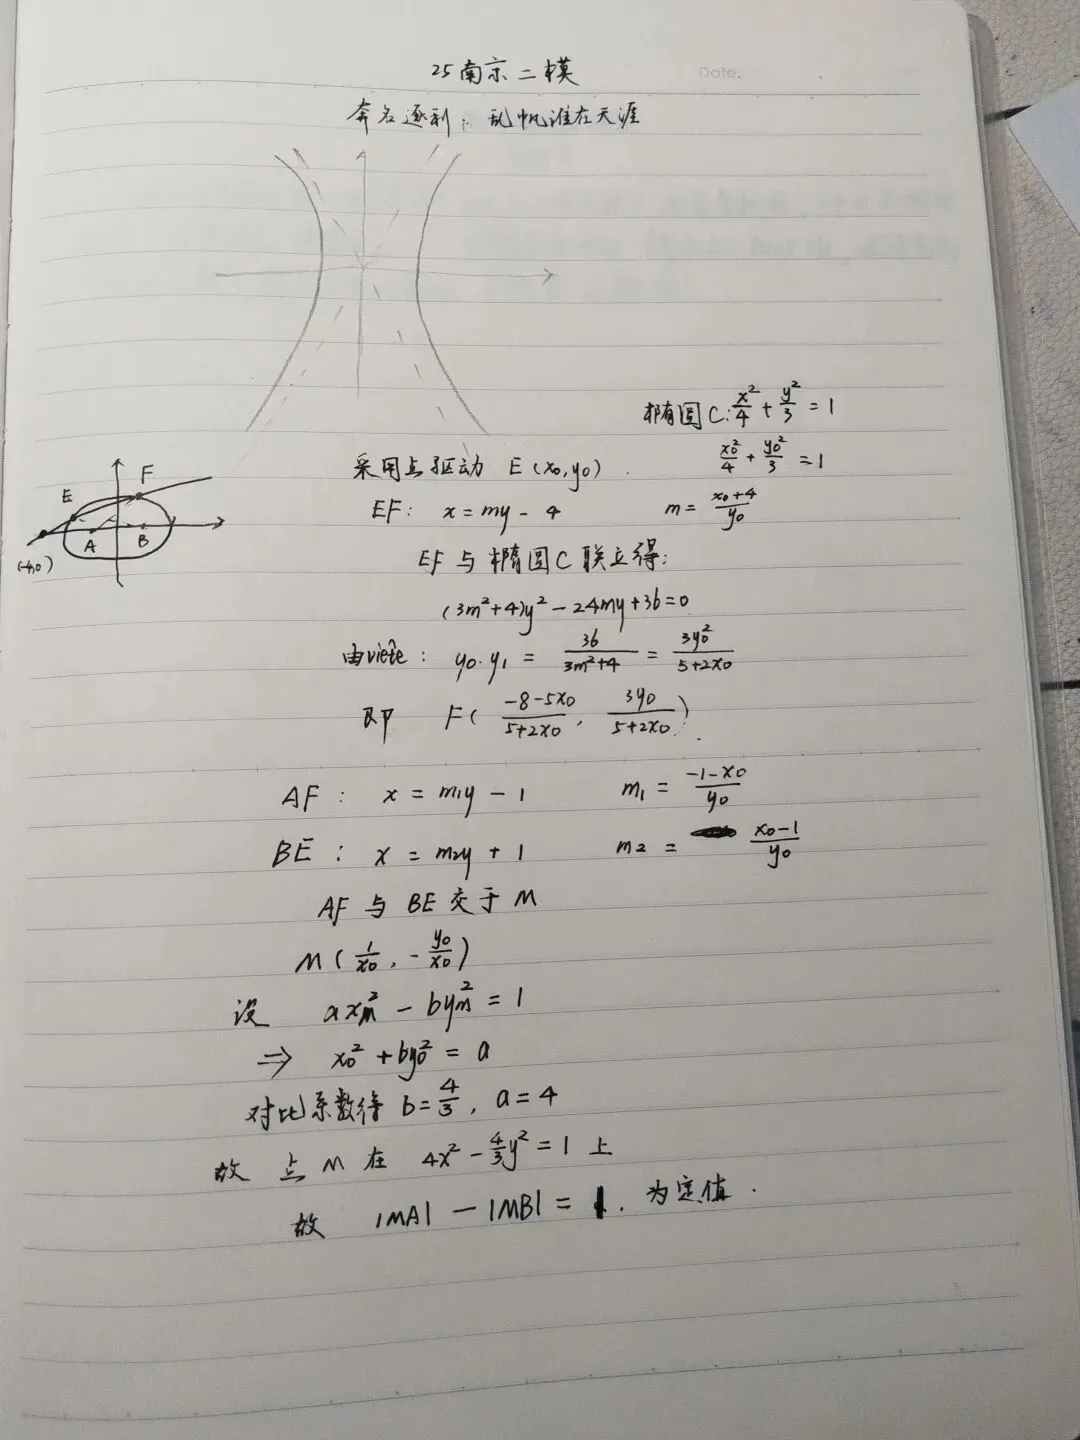 25南京二模
Date.
奔名逐利，乱帆谁在天涯
椭圆C: x²/4 + y²/3 = 1
采用点驱动 E(x₀,y₀). x₀²/4 + y₀²/3 = 1
F
E
A
B
(-4,0)
EF: x = my - 4 m = (x₀+4)/y₀
EF与椭圆C联立得:
(3m²+4)y² - 24my + 36 = 0
由viète: y₀·y₁ = 36/(3m²+4) = 3y₀²/(5+2x₀)
即 F( (-8-5x₀)/(5+2x₀), 3y₀/(5+2x₀) ).
AF: x = m₁y - 1 m₁ = (-1-x₀)/y₀
BE: x = m₂y + 1 m₂ = (x₀-1)/y₀
AF与BE交于M
M( 1/x₀, -y₀/x₀ )
设 axₘ² - byₘ² = 1
⇒ x₀² + by₀² = a
对比系数得 b = 4/3, a = 4
故 点M在 4x² - 4/3 y² = 1 上
故 |MA| - |MB| = 1. 为定值.